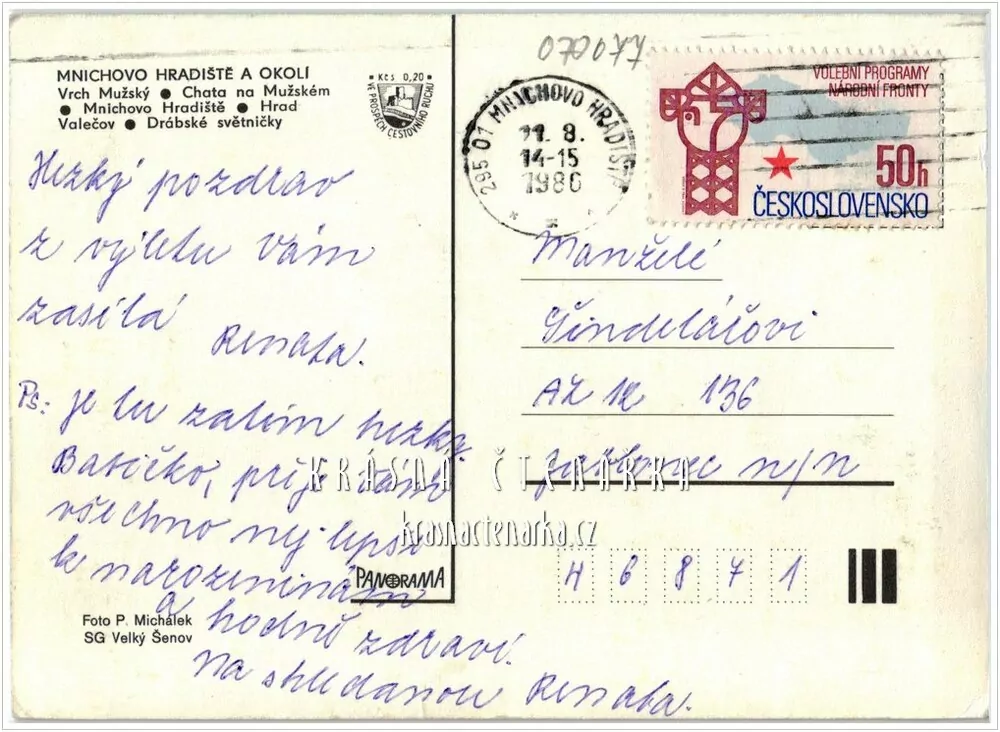 MNICHOVO HRADIŠTĚ A OKOLÍ
Vrch Mužský ● Chata na Mužském
● Mnichovo Hradiště ● Hrad
Valečov ● Drábské světničky
Kčs 0,20
VE PROSPĚCH CESTOVNÍHO RUCHU
070077
295 01 MNICHOVO HRADIŠTĚ
8.
14-15
1986
VOLEBNÍ PROGRAMY
NÁRODNÍ FRONTY
50h
ČESKOSLOVENSKO
Hezký pozdrav
z výletu vám
zasílá
Renata.
Ps: je tu zatím hezky.
Babičko, přeji vám
všechno nejlepší
k narozeninám
a hodně zdraví.
na shledanou Renata.
Manželé
Šindelářovi
136
Jablonec n/n
46871
KRÁSNÁ ČTENÁŘKA
krasnactenarka.cz
PANORAMA
Foto P. Michálek
SG Velký Šenov